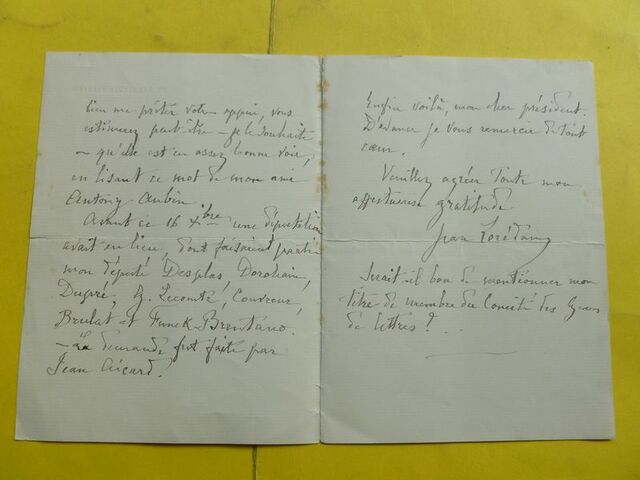 bien me prêter votre appui, vous
estimerez peut-être – je le souhaite –
– qu'elle est en assez bonne voie,
en lisant ce mot de mon ami
Antony Aubin.
Avant ce 16 Xbre une députation
avait eu lieu, dont faisaient partie
mon député Desplas, Dorchain,
Dupré, G. Lecomte, Couvreur,
Brulat et Funck-Brentano.
– La demande fut faite par
Jean Aicard.
Enfin voilà, mon cher président.
D'avance je vous remercie de tout
cœur.
Veuillez agréer toute mon
affectueuse gratitude
Jean
Serait-il bon de mentionner mon
titre de membre du Comité des Gens
de lettres? . .